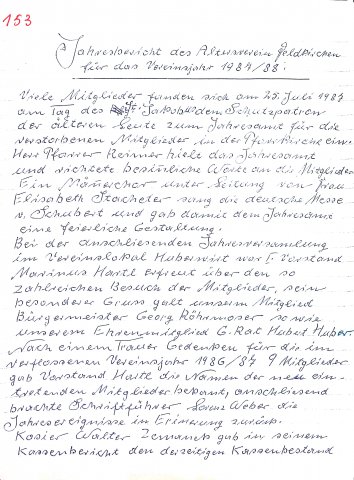 153
Jahresbericht des Altersverein Feldkirchen
für das Vereinsjahr 1987/88.
Viele Mitglieder fanden sich am 25. Juli 1987
am Tag des Hl. Jakobus dem Schutzpatron
der älteren Leute zum Jahresamt für die
verstorbenen Mitglieder in der Pfarrkirche ein.
Herr Pfarrer Reimer hielt das Jahresamt
und richtete besinliche Worte an die Mitglieder.
Ein Männerchor unter Leitung von Frau
Elisabeth Stacheter sang die deutsche Messe
v. Schubert und gab damit dem Jahresamt
eine feierliche Gestaltung.
Bei der anschliesenden Jahresversammlung
im Vereinslokal Huberwirt war I. Vorstand
Marinus Hartl erfreut über den so
zahlreichen Besuch der Mitglieder, sein
besonderer Gruss galt unserem Mitglied
Bürgermeister Georg Röhrmoser sowie
unserem Ehrenmitglied G. Rat Hubert Huber.
Nach einem Trauer Gedenken für die im
verflossenen Vereinsjahr 1986/87 9 Mitglieder
gab Vorstand Hartl die Namen der neu ein-
tretenden Mitglieder bekant, anschliesend
brachte Schriftführer Lorenz Weber die
Jahresereignisse in Erinerung zurück.
Kasier Walter Zemanek gab in seinem
Kassenbericht den derzeitigen Kassenbestand